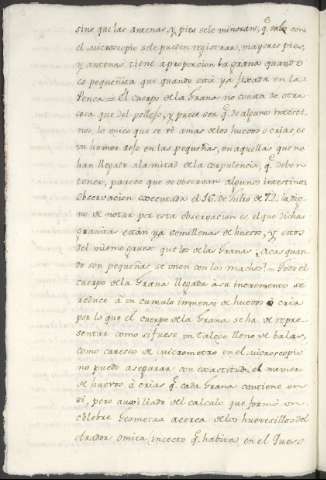 sino que las antenas, y pies se le minoran, q.e solo con
el microscopio se le pueden registrar, mayores pies,
y antenas tiene aproporcion la grana quando
es pequeñita que quando está ya fixada en la
Penca = El cuerpo de la Grana no consta de otra
cosa que del pellejo, y pueda ser q.e de algunos intesti
nos, lo unico que se ve á mas de los huevos o crias es
un humor, esto en las pequeñas, en aquellas que no
han llegado a la mitad de la corpulencia, q.e deben
tener, parece que se observan algunos intestinos
Observacion executada el de Julio de 72. lo dig
no de notar por esta observacion es el que dichas
granitas están ya llenas de huevos, y estos
del mismo grueso que los de las Granas, Acas quan
do son pequeñas se unen con los machos = Todo el
cuerpo de la Grana llegada a su incremento se
reduce á un cumulo immenso de huevos ó crias
por lo que el cuerpo de la Grana se ha de repre
sentar como si fuese un talego lleno de balas,
como carecio de micrometro en el microscopio
no puedo asegurar con exactitud el numero
de huevos ó crias q.e cada Grana contiene en
sí, pero auxiliado del calculo que formó un
celebre Geometra acerca de los huevecillos del
insecto q.e habita en el